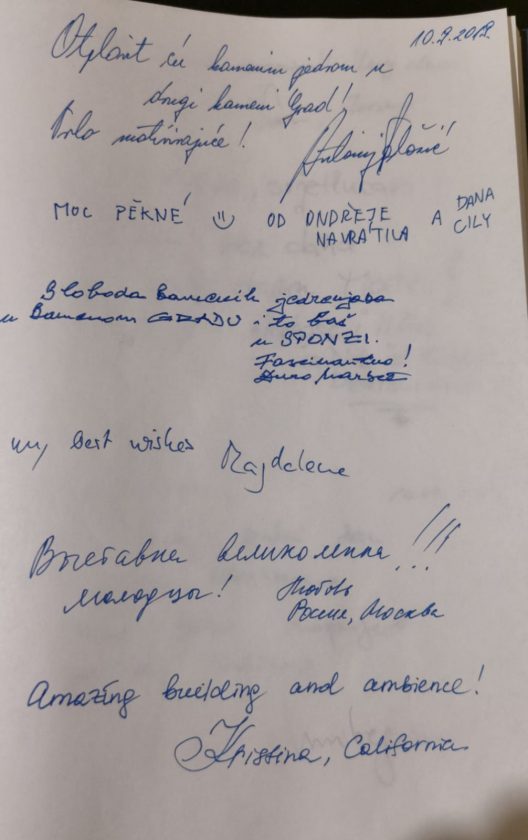 10.9.2019.
Otplovit ću kamenim jedrom u
drugi kameni Grad!
Vrlo motivirajuće!
MOC PĚKNÉ ☺ OD ONDŘEJE NAVRÁTILA A DANA CILY
Sloboda kamenih jedrenjaka
u kamenom GRADU i to baš
u SPONZI.
Fascinantno!
my best wishes Magdalene
Выставка великолепна!!!
молодцы! Любовь
Россия, Москва
Amazing building and ambience!
Kristina, California